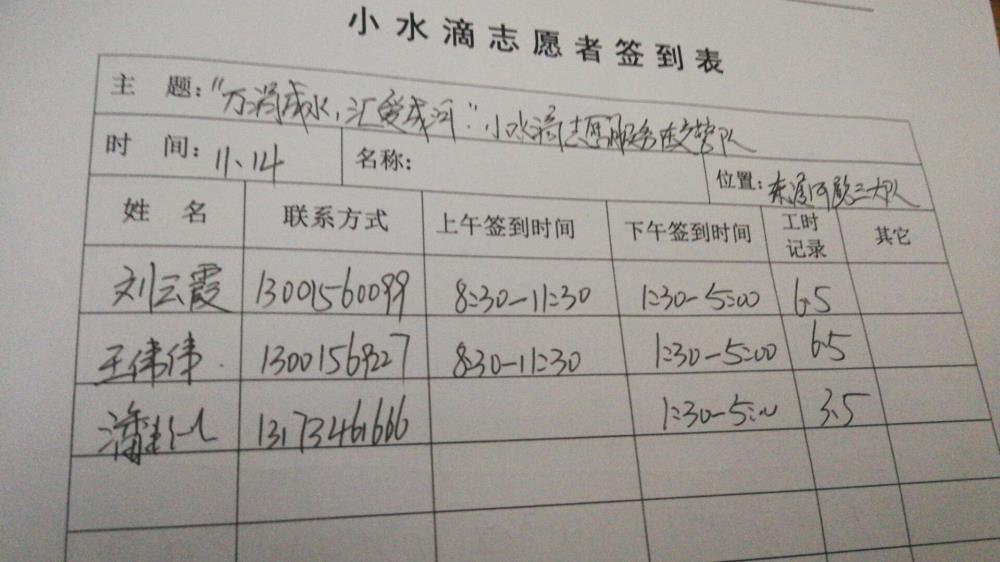 小水滴志愿者签到表
主 题："万涓成水，汇爱成河"小水滴志愿服务in交警队
时 间：11、14 名称： 位置：东通河路三大队
姓 名 联系方式 上午签到时间 下午签到时间 工时记录 其它
刘云霞 13001560099 8:30-11:30 1:30-5:00 6.5
王伟伟 13001569227 8:30-11:30 1:30-5:00 6.5
潘 13173461666 1:30-5:00 3.5